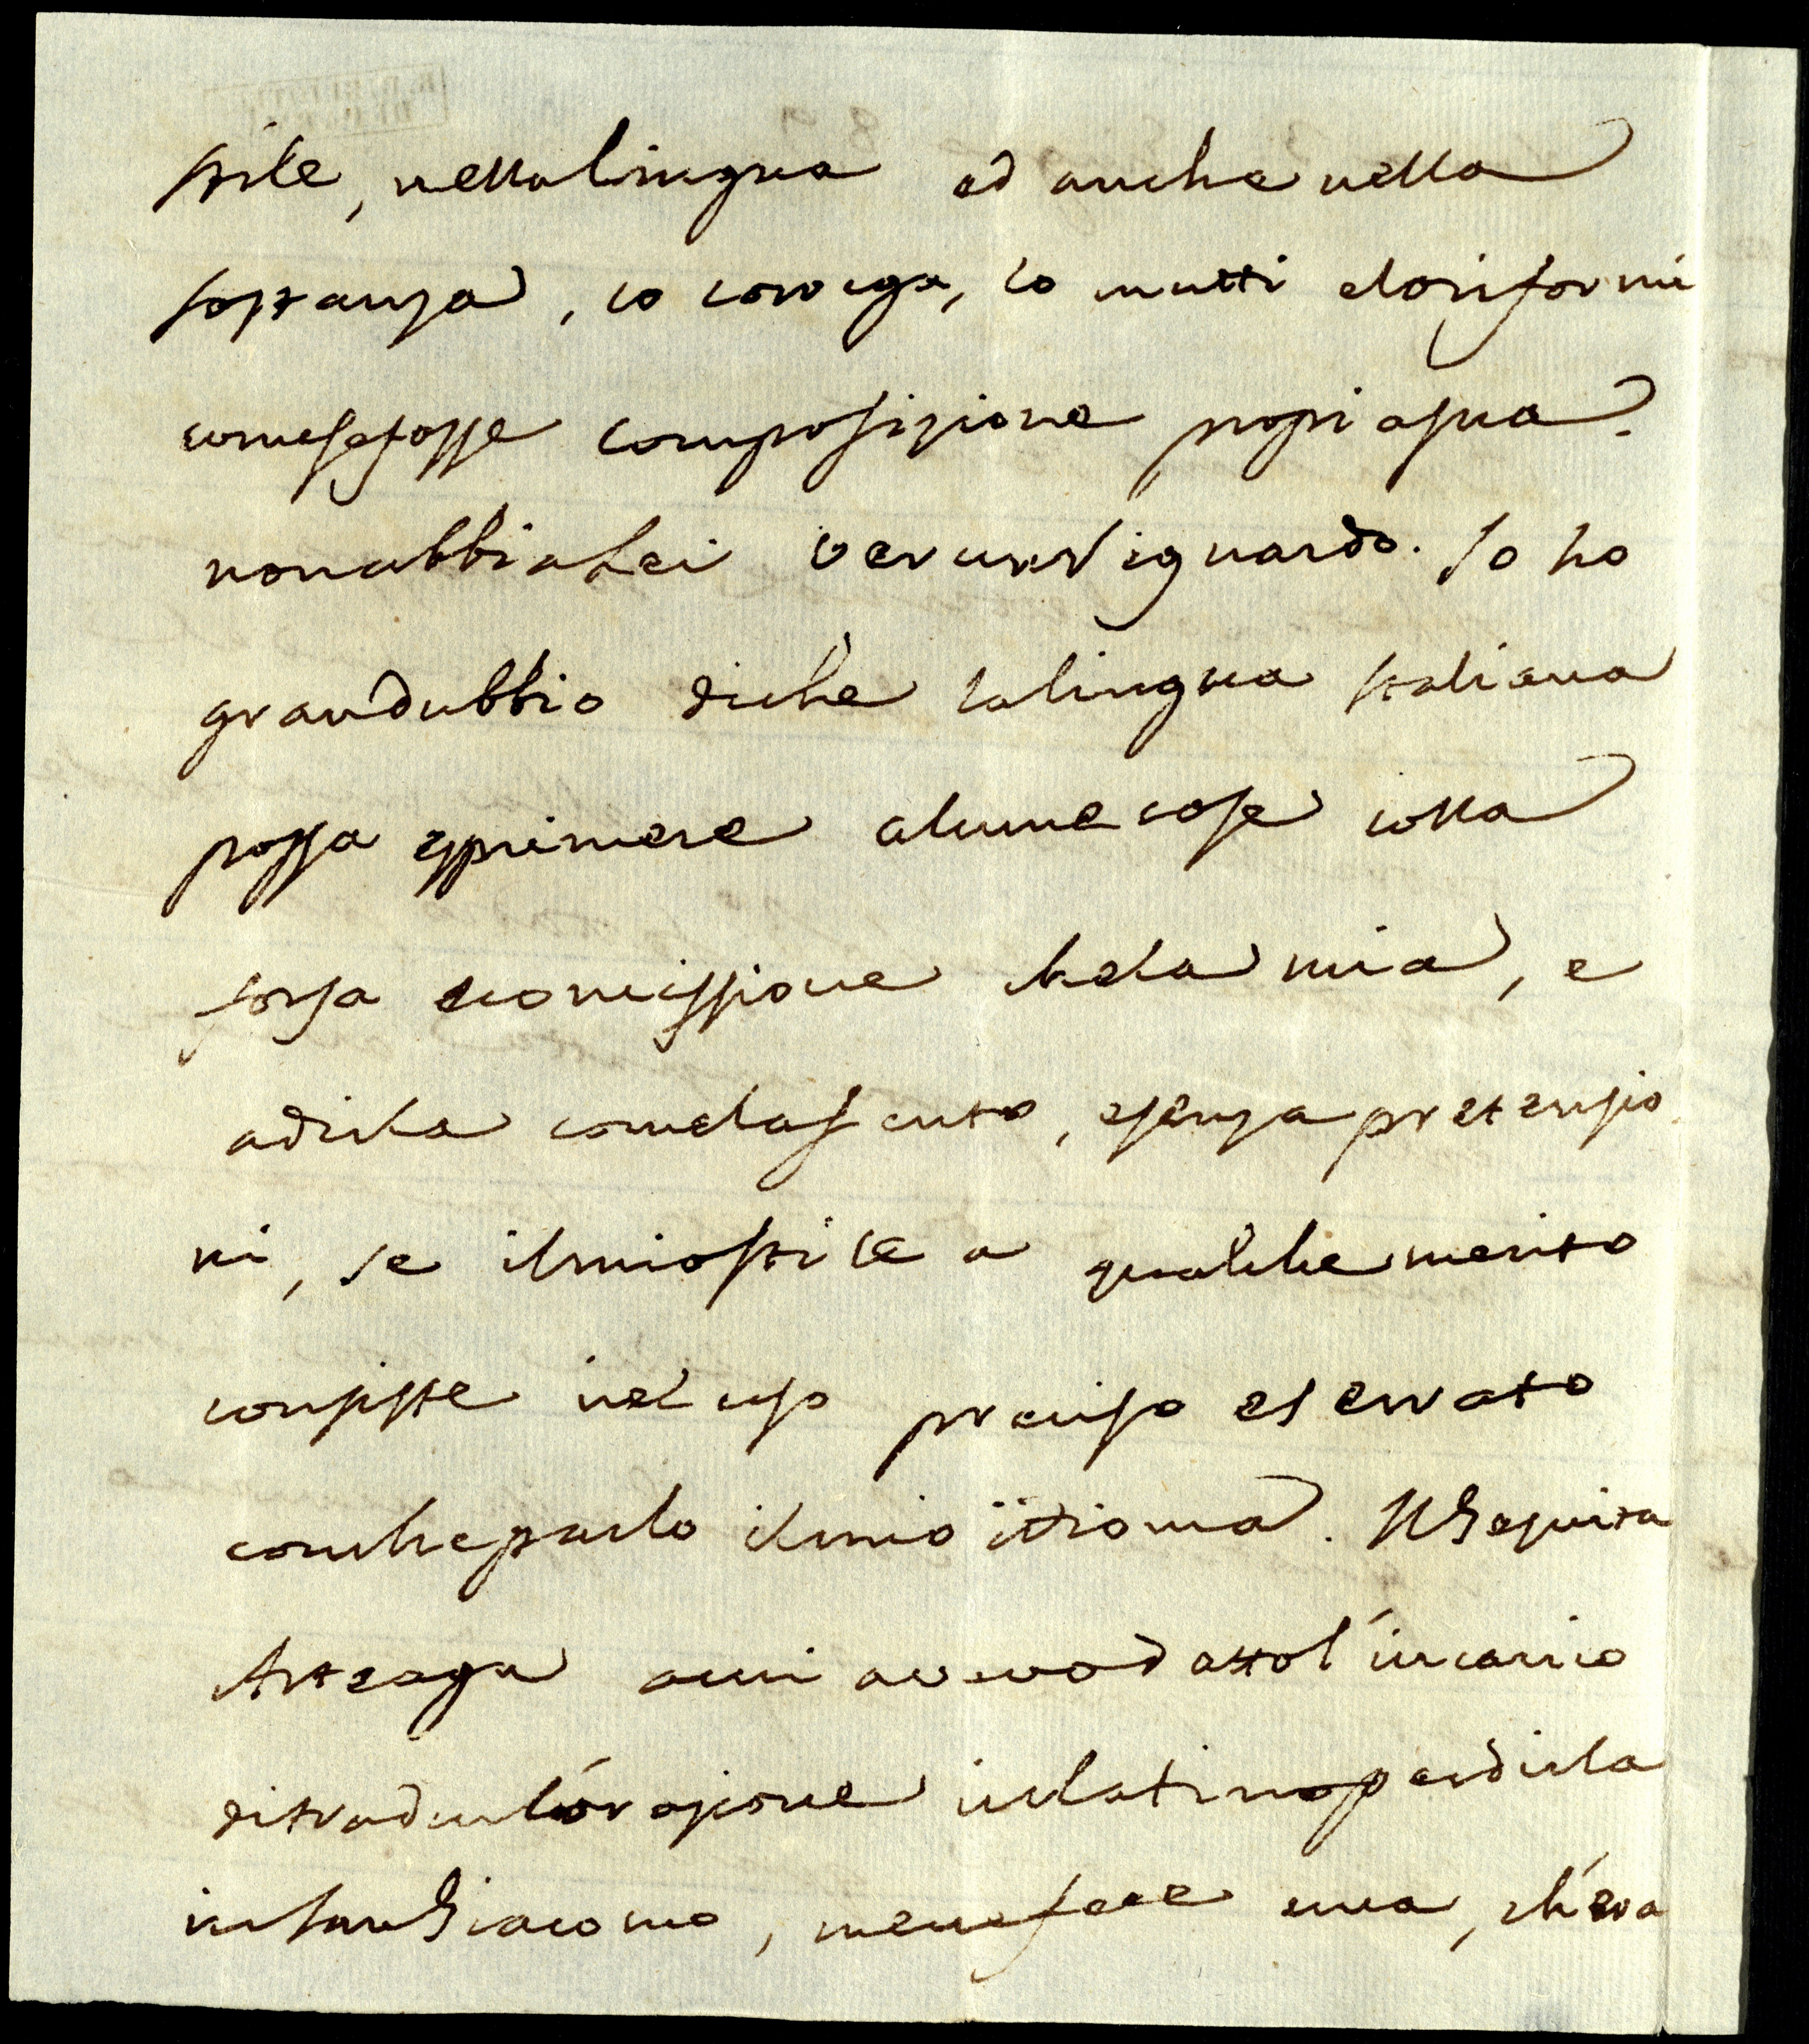 stile, nella lingua ed anche nella
sostanza, lo corega, lo mutti e lo riformi
come se fosse composizione propia sua.
non abbia Lei verun riguardo. Io ho
gran dubbio di che la lingua Italiana
possa esprimere alcune cose colla
forza e comissione che la mia, e
a dirla come la sento, e senza pretensio
ni, se il mio stile a qualche merito
consiste nel uso preciso e serrato
con che parlo il mio idioma. Il Gesuita
Arteaga a cui avevo datto l'incarico
di tradur l'orazione in latino per dirla
in San Giacomo, me ne fece una, ch'era